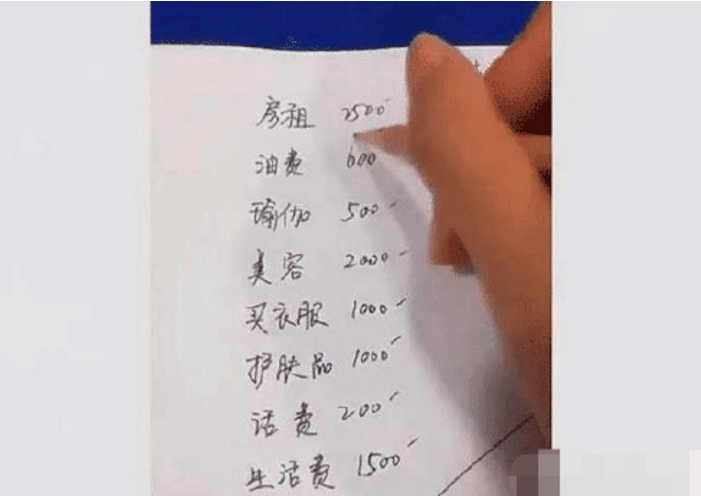 房租 2500
油费 600
瑜伽 500
美容 2000
买衣服 1000
护肤品 1000
话费 200
生活费 1500